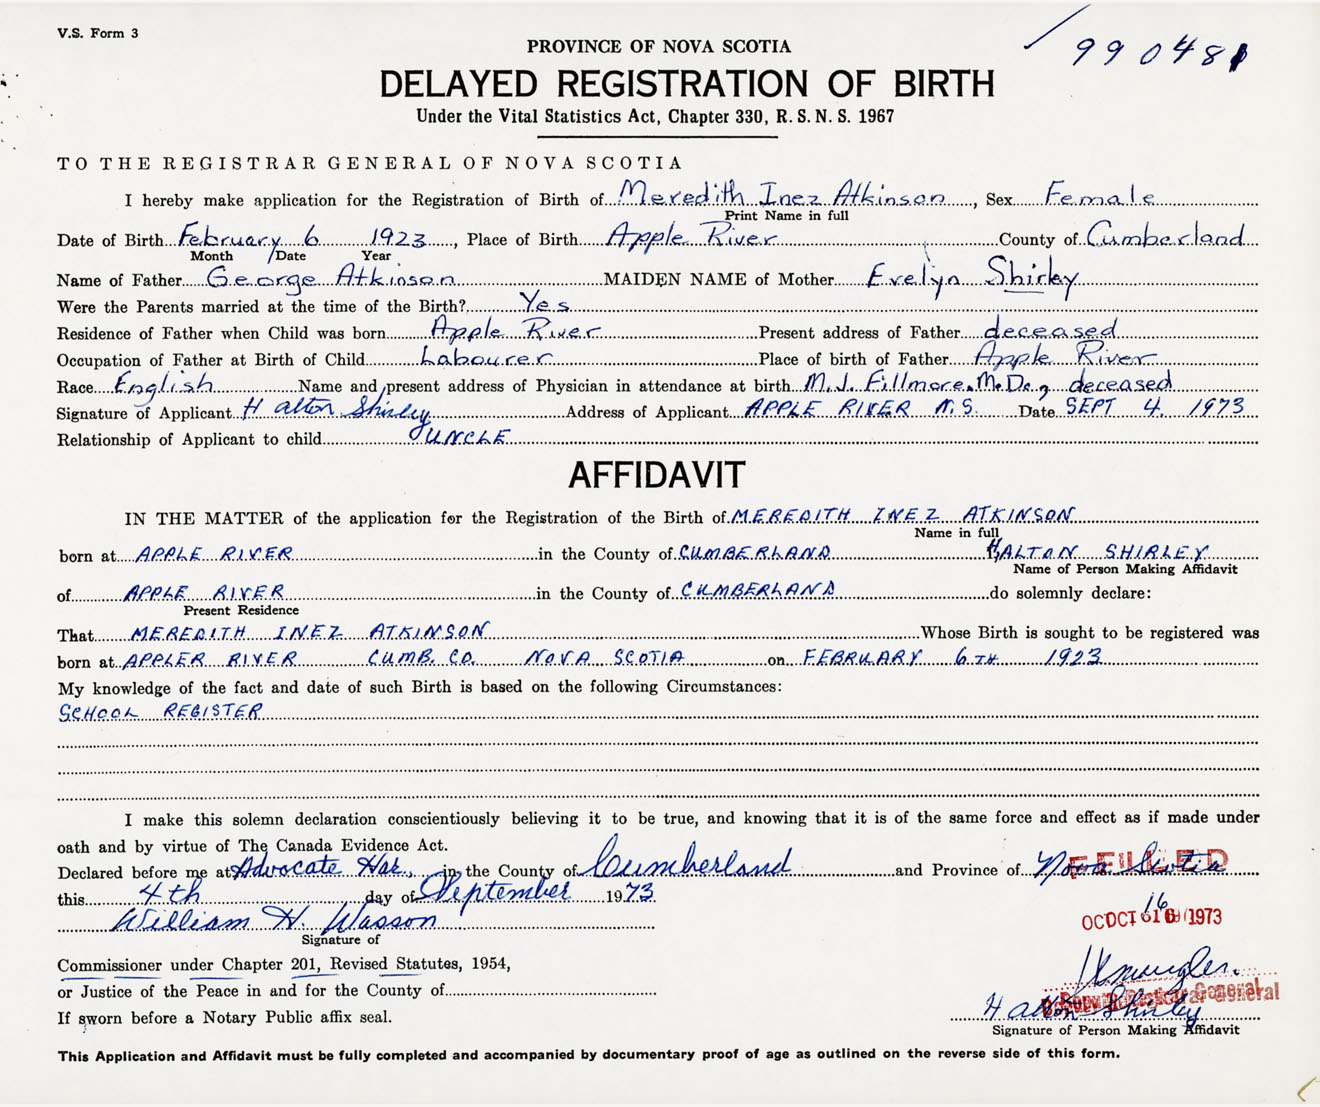 V.S. Form 3
990481
PROVINCE OF NOVA SCOTIA
DELAYED REGISTRATION OF BIRTH
Under the Vital Statistics Act, Chapter 330, R.S.N.S. 1967
TO THE REGISTRAR GENERAL OF NOVA SCOTIA
I hereby make application for the Registration of Birth of Meredith Inez Atkinson, Sex Female
Print Name in full
Date of Birth February 6 1923, Place of Birth Apple River County of Cumberland
Month / Date Year
Name of Father George Atkinson MAIDEN NAME of Mother Evelyn Shirley
Were the Parents married at the time of the Birth? Yes
Residence of Father when Child was born Apple River Present address of Father deceased
Occupation of Father at Birth of Child Labourer Place of birth of Father Apple River
Race English Name and present address of Physician in attendance at birth M.J. Fillmore, M.D., deceased
Signature of Applicant Halton Shirley Address of Applicant APPLE RIVER N.S. Date SEPT 4. 1973
Relationship of Applicant to child UNCLE
AFFIDAVIT
IN THE MATTER of the application for the Registration of the Birth of MEREDITH INEZ ATKINSON
Name in full
born at APPLE RIVER in the County of CUMBERLAND HALTON SHIRLEY
Name of Person Making Affidavit
of APPLE RIVER in the County of CUMBERLAND do solemnly declare:
Present Residence
That MEREDITH INEZ ATKINSON Whose Birth is sought to be registered was
born at APPLER RIVER CUMB. CO. NOVA SCOTIA on FEBRUARY 6TH 1923
My knowledge of the fact and date of such Birth is based on the following Circumstances:
SCHOOL REGISTER
I make this solemn declaration conscientiously believing it to be true, and knowing that it is of the same force and effect as if made under
oath and by virtue of The Canada Evidence Act.
Declared before me at Advocate Har., in the County of Cumberland and Province of Nova Scotia
FILED
this 4th day of September 1973
William H. Wasson
OCT 16 1973
Signature of
Commissioner under Chapter 201, Revised Statutes, 1954,
or Justice of the Peace in and for the County of
Halton Shirley
If sworn before a Notary Public affix seal.
Signature of Person Making Affidavit
This Application and Affidavit must be fully completed and accompanied by documentary proof of age as outlined on the reverse side of this form.